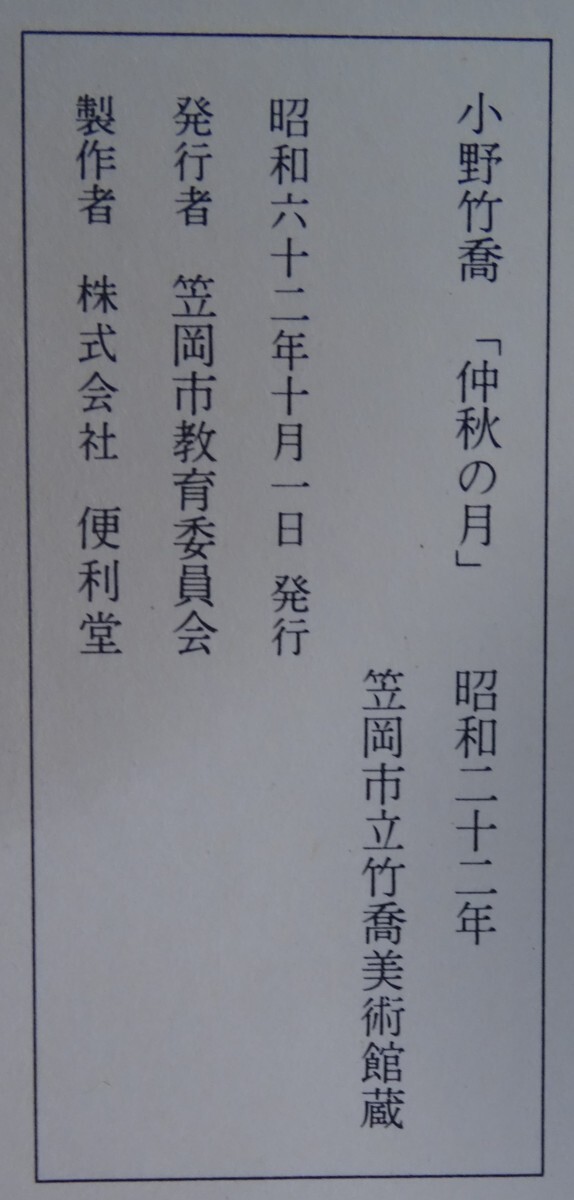 小野竹喬　「仲秋の月」　昭和二十二年
笠岡市立竹喬美術館蔵
昭和六十二年十月一日 発行
発行者　笠岡市教育委員会
製作者　株式会社　便利堂